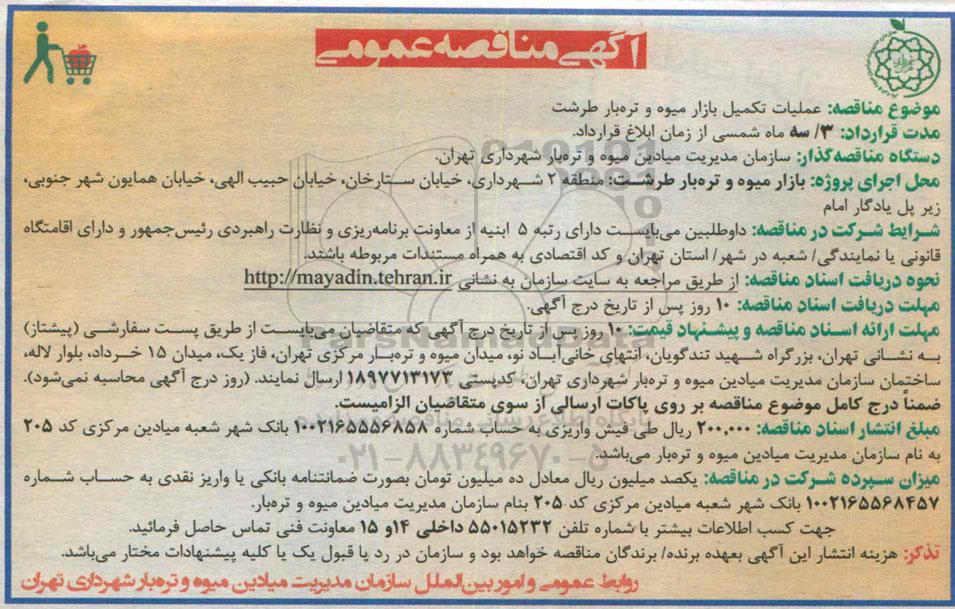 آگهی مناقصه عمومی
موضوع مناقصه: عملیات تکمیل بازار میوه و تره‌بار طرشت
مدت قرارداد: ۳/ سه ماه شمسی از زمان ابلاغ قرارداد.
دستگاه مناقصه‌گذار: سازمان مدیریت میادین میوه و تره‌بار شهرداری تهران.
محل اجرای پروژه: بازار میوه و تره‌بار طرشت: منطقه ۲ شهرداری، خیابان ستارخان، خیابان حبیب الهی، خیابان همایون شهر جنوبی،
زیر پل یادگار امام
شرایط شرکت در مناقصه: داوطلبین می‌بایست دارای رتبه ۵ ابنیه از معاونت برنامه‌ریزی و نظارت راهبردی رئیس‌جمهور و دارای اقامتگاه
قانونی یا نمایندگی/ شعبه در شهر/ استان تهران و کد اقتصادی به همراه مستندات مربوطه باشند.
نحوه دریافت اسناد مناقصه: از طریق مراجعه به سایت سازمان به نشانی http://mayadin.tehran.ir
مهلت دریافت اسناد مناقصه: ۱۰ روز پس از تاریخ درج آگهی.
مهلت ارائه اسناد مناقصه و پیشنهاد قیمت: ۱۰ روز پس از تاریخ درج آگهی که متقاضیان می‌بایست از طریق پست سفارشی (پیشتاز)
به نشانی تهران، بزرگراه شهید تندگویان، انتهای خانی‌آباد نو، میدان میوه و تره‌بار مرکزی تهران، فاز یک، میدان ۱۵ خرداد، بلوار لاله،
ساختمان سازمان مدیریت میادین میوه و تره‌بار شهرداری تهران، کدپستی ۱۸۹۷۷۱۳۱۷۳ ارسال نمایند. (روز درج آگهی محاسبه نمی‌شود).
ضمناً درج کامل موضوع مناقصه بر روی پاکات ارسالی از سوی متقاضیان الزامیست.
مبلغ انتشار اسناد مناقصه: ۲۰۰,۰۰۰ ریال طی فیش واریزی به حساب شماره ۱۰۰۲۱۶۵۵۵۶۸۵۸ بانک شهر شعبه میادین مرکزی کد ۲۰۵
به نام سازمان مدیریت میادین میوه و تره‌بار می‌باشد.
میزان سپرده شرکت در مناقصه: یکصد میلیون ریال معادل ده میلیون تومان بصورت ضمانتنامه بانکی یا واریز نقدی به حساب شماره
۱۰۰۲۱۶۵۵۶۸۴۵۷ بانک شهر شعبه میادین مرکزی کد ۲۰۵ بنام سازمان مدیریت میادین میوه و تره‌بار.
جهت کسب اطلاعات بیشتر با شماره تلفن ۵۵۰۱۵۲۳۲ داخلی ۱۴و ۱۵ معاونت فنی تماس حاصل فرمائید.
تذکر: هزینه انتشار این آگهی بعهده برنده/ برندگان مناقصه خواهد بود و سازمان در رد یا قبول یک یا کلیه پیشنهادات مختار می‌باشد.
روابط عمومی و امور بین‌الملل سازمان مدیریت میادین میوه و تره‌بار شهرداری تهران
ParsNamadData
۰۲۱-۸۸۳۴۹۶۷۰-۵